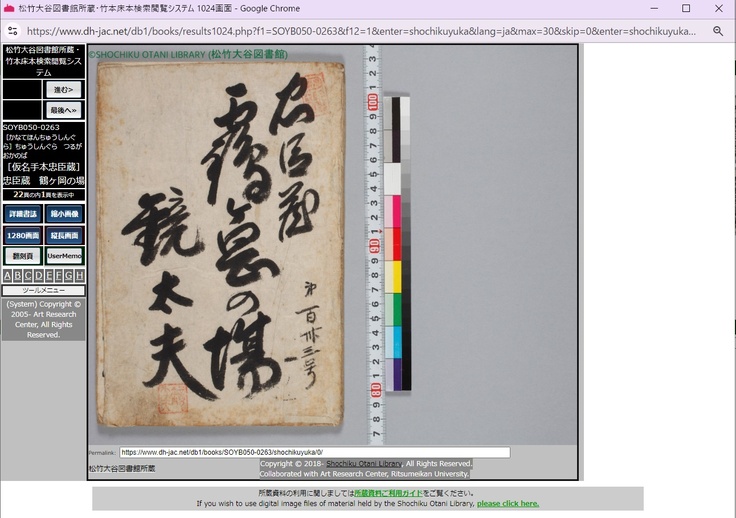 松竹大谷図書館所蔵・竹本床本検索閲覧システム 1024画面 - Google Chrome
https://www.dh-jac.net/db1/books/results1024.php?f1=SOYB050-0263&f12=1&enter=shochikuyuka&lang=ja&max=30&skip=0&enter=shochikuyuka...
松竹大谷図書館所蔵・
竹本床本検索閲覧シス
テム
進む>
最後へ»
SOYB050-0263
［かなてほんちゅうしんぐ
ら］ちゅうしんぐら　つるが
おかのば
［仮名手本忠臣蔵］
忠臣蔵　鶴ヶ岡の場
22頁の内1頁を表示中
詳細書誌
縮小画像
1280画面
縦長画面
翻刻頁
UserMemo
A B C D E F G H
ツールメニュー
(System) Copyright ©
2005- Art Research
Center, All Rights
Reserved.
©SHOCHIKU OTANI LIBRARY (松竹大谷図書館)
忠臣蔵
鶴ヶ岡の場
第百卅三号
鏡太夫
1 2 3
100
9 8 7 6 5 4 3 2 1
90
9 8 7 6 5 4 3 2 1
80
9 8 7
Permalink: https://www.dh-jac.net/db1/books/SOYB050-0263/shochikuyuka/0/
松竹大谷図書館所蔵
Copyright © 2018- Shochiku Otani Library, All Rights Reserved.
Collaborated with Art Research Center, Ritsumeikan University.
所蔵資料の利用に関しましては所蔵資料ご利用ガイドをご覧ください。
If you wish to use digital image files of material held by the Shochiku Otani Library, please click here.